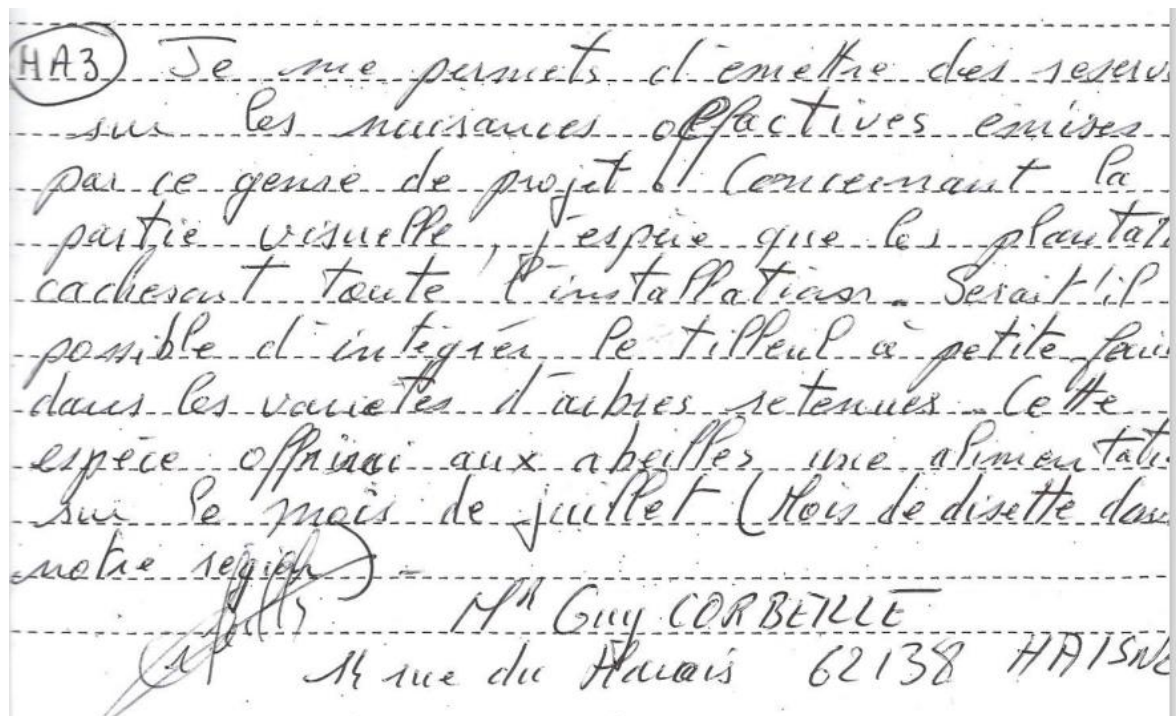 HA3 Je me permets d'emettre des reserv
sur les nuisances olfactives émises
par ce genre de projet. Concernant la
partie visuelle, j'espère que les plantati
cacheront toute l'installation. Serait-il
possible d'intégrer le tilleul à petite feui
dans les varietés d'arbres retenues. Cette
espèce offrirai aux abeilles une alimentati
sur le mois de juillet (Mois de disette dans
notre région).
Mr Guy CORBEILLE
14 rue du Marais 62138 HAISNE